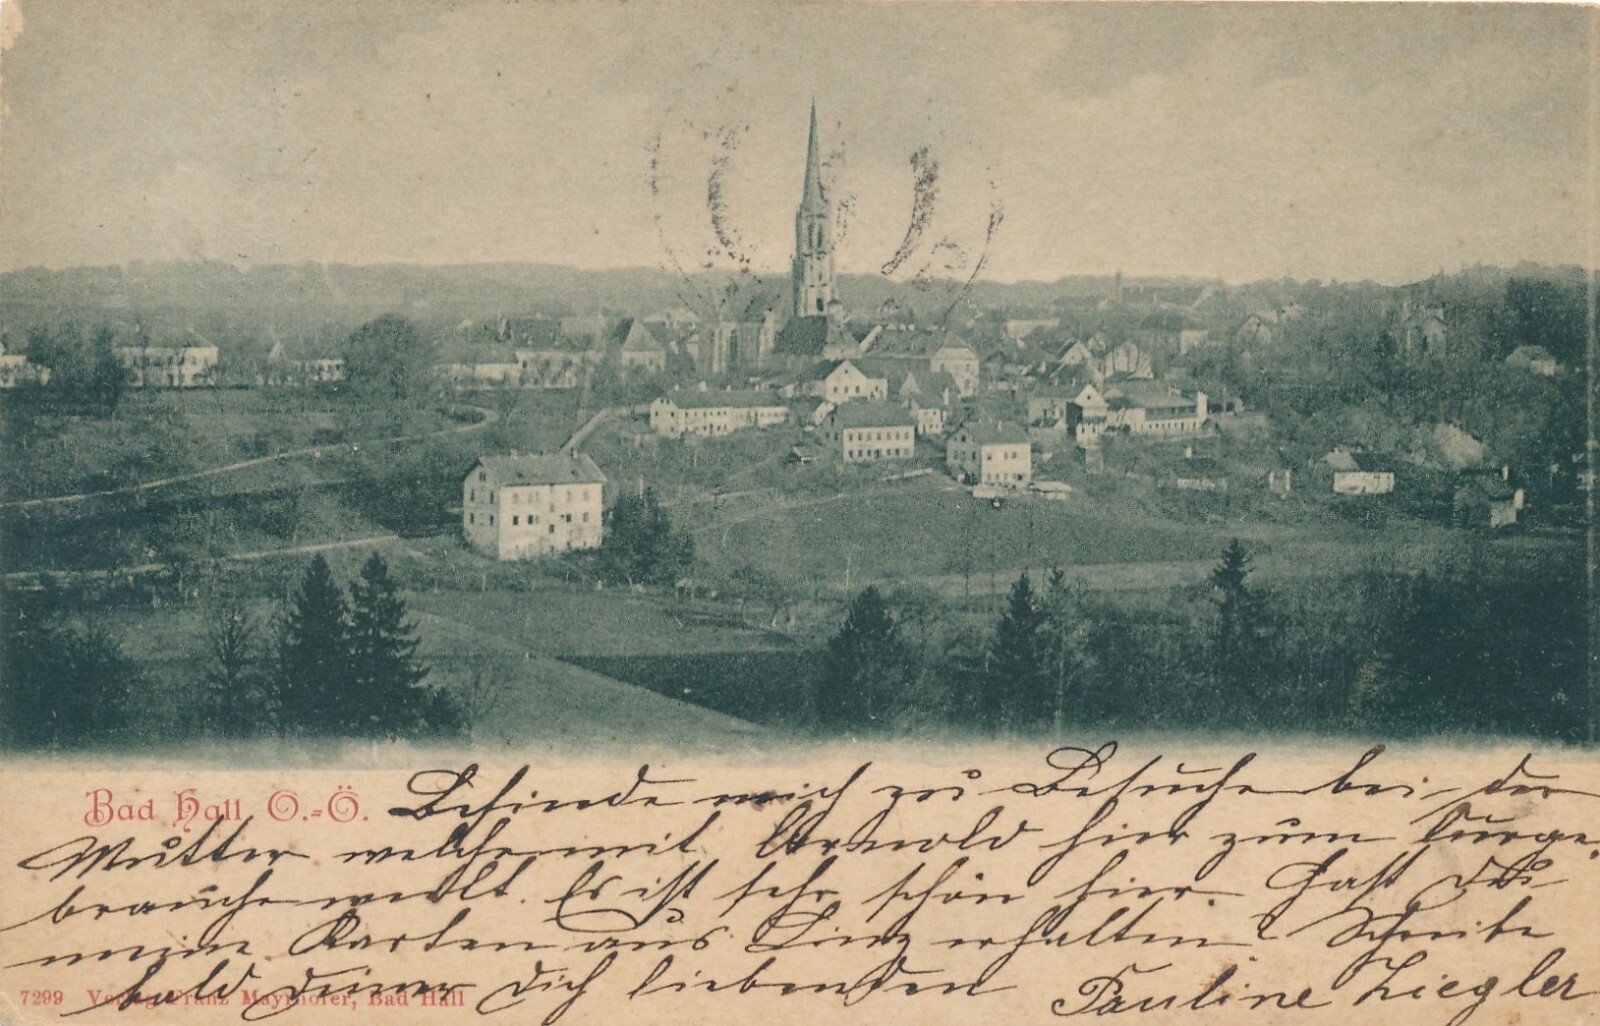 Bad Hall O.-Ö.
Befinde mich zu Besuche bei der
Mutter welche mit Arnold hier zum Curge-
brauche weilt. Es ist sehr schön hier. Hast du
meine Karten aus Linz erhalten? Schreibe
bald deiner dich liebenden Pauline Ziegler
7299 Verlag Franz Mayrhofer, Bad Hall